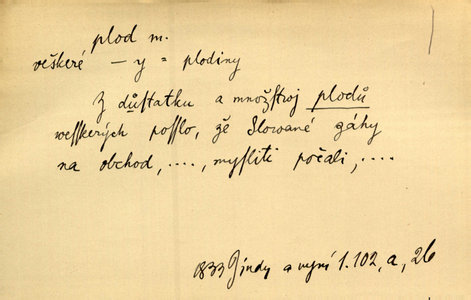 plod m.
veškeré – y = plodiny
Z důstatku a množstwj plodů
wesskerých possĺo, že Slowané záhy
na obchod, ...., mysliti počali, ....
1833 Jindy a nynj 1. 102, a, 26